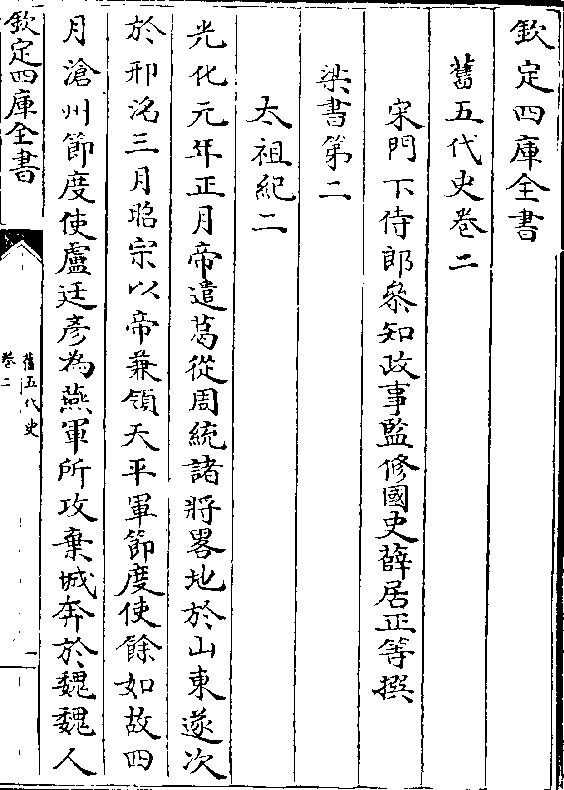 欽定四庫全書
舊五代史卷二
宋門下侍郎叅知政事監修國史薛居正等撰
梁書第二
太祖紀二
光化元年正月帝遣葛從周統諸將畧地於山東遂次
於邢洺三月昭宗以帝兼領天平軍節度使餘如故四
月滄州節度使盧廷彥為燕軍所攻棄城奔於魏魏人
欽定四庫全書
舊五代史
卷二
一